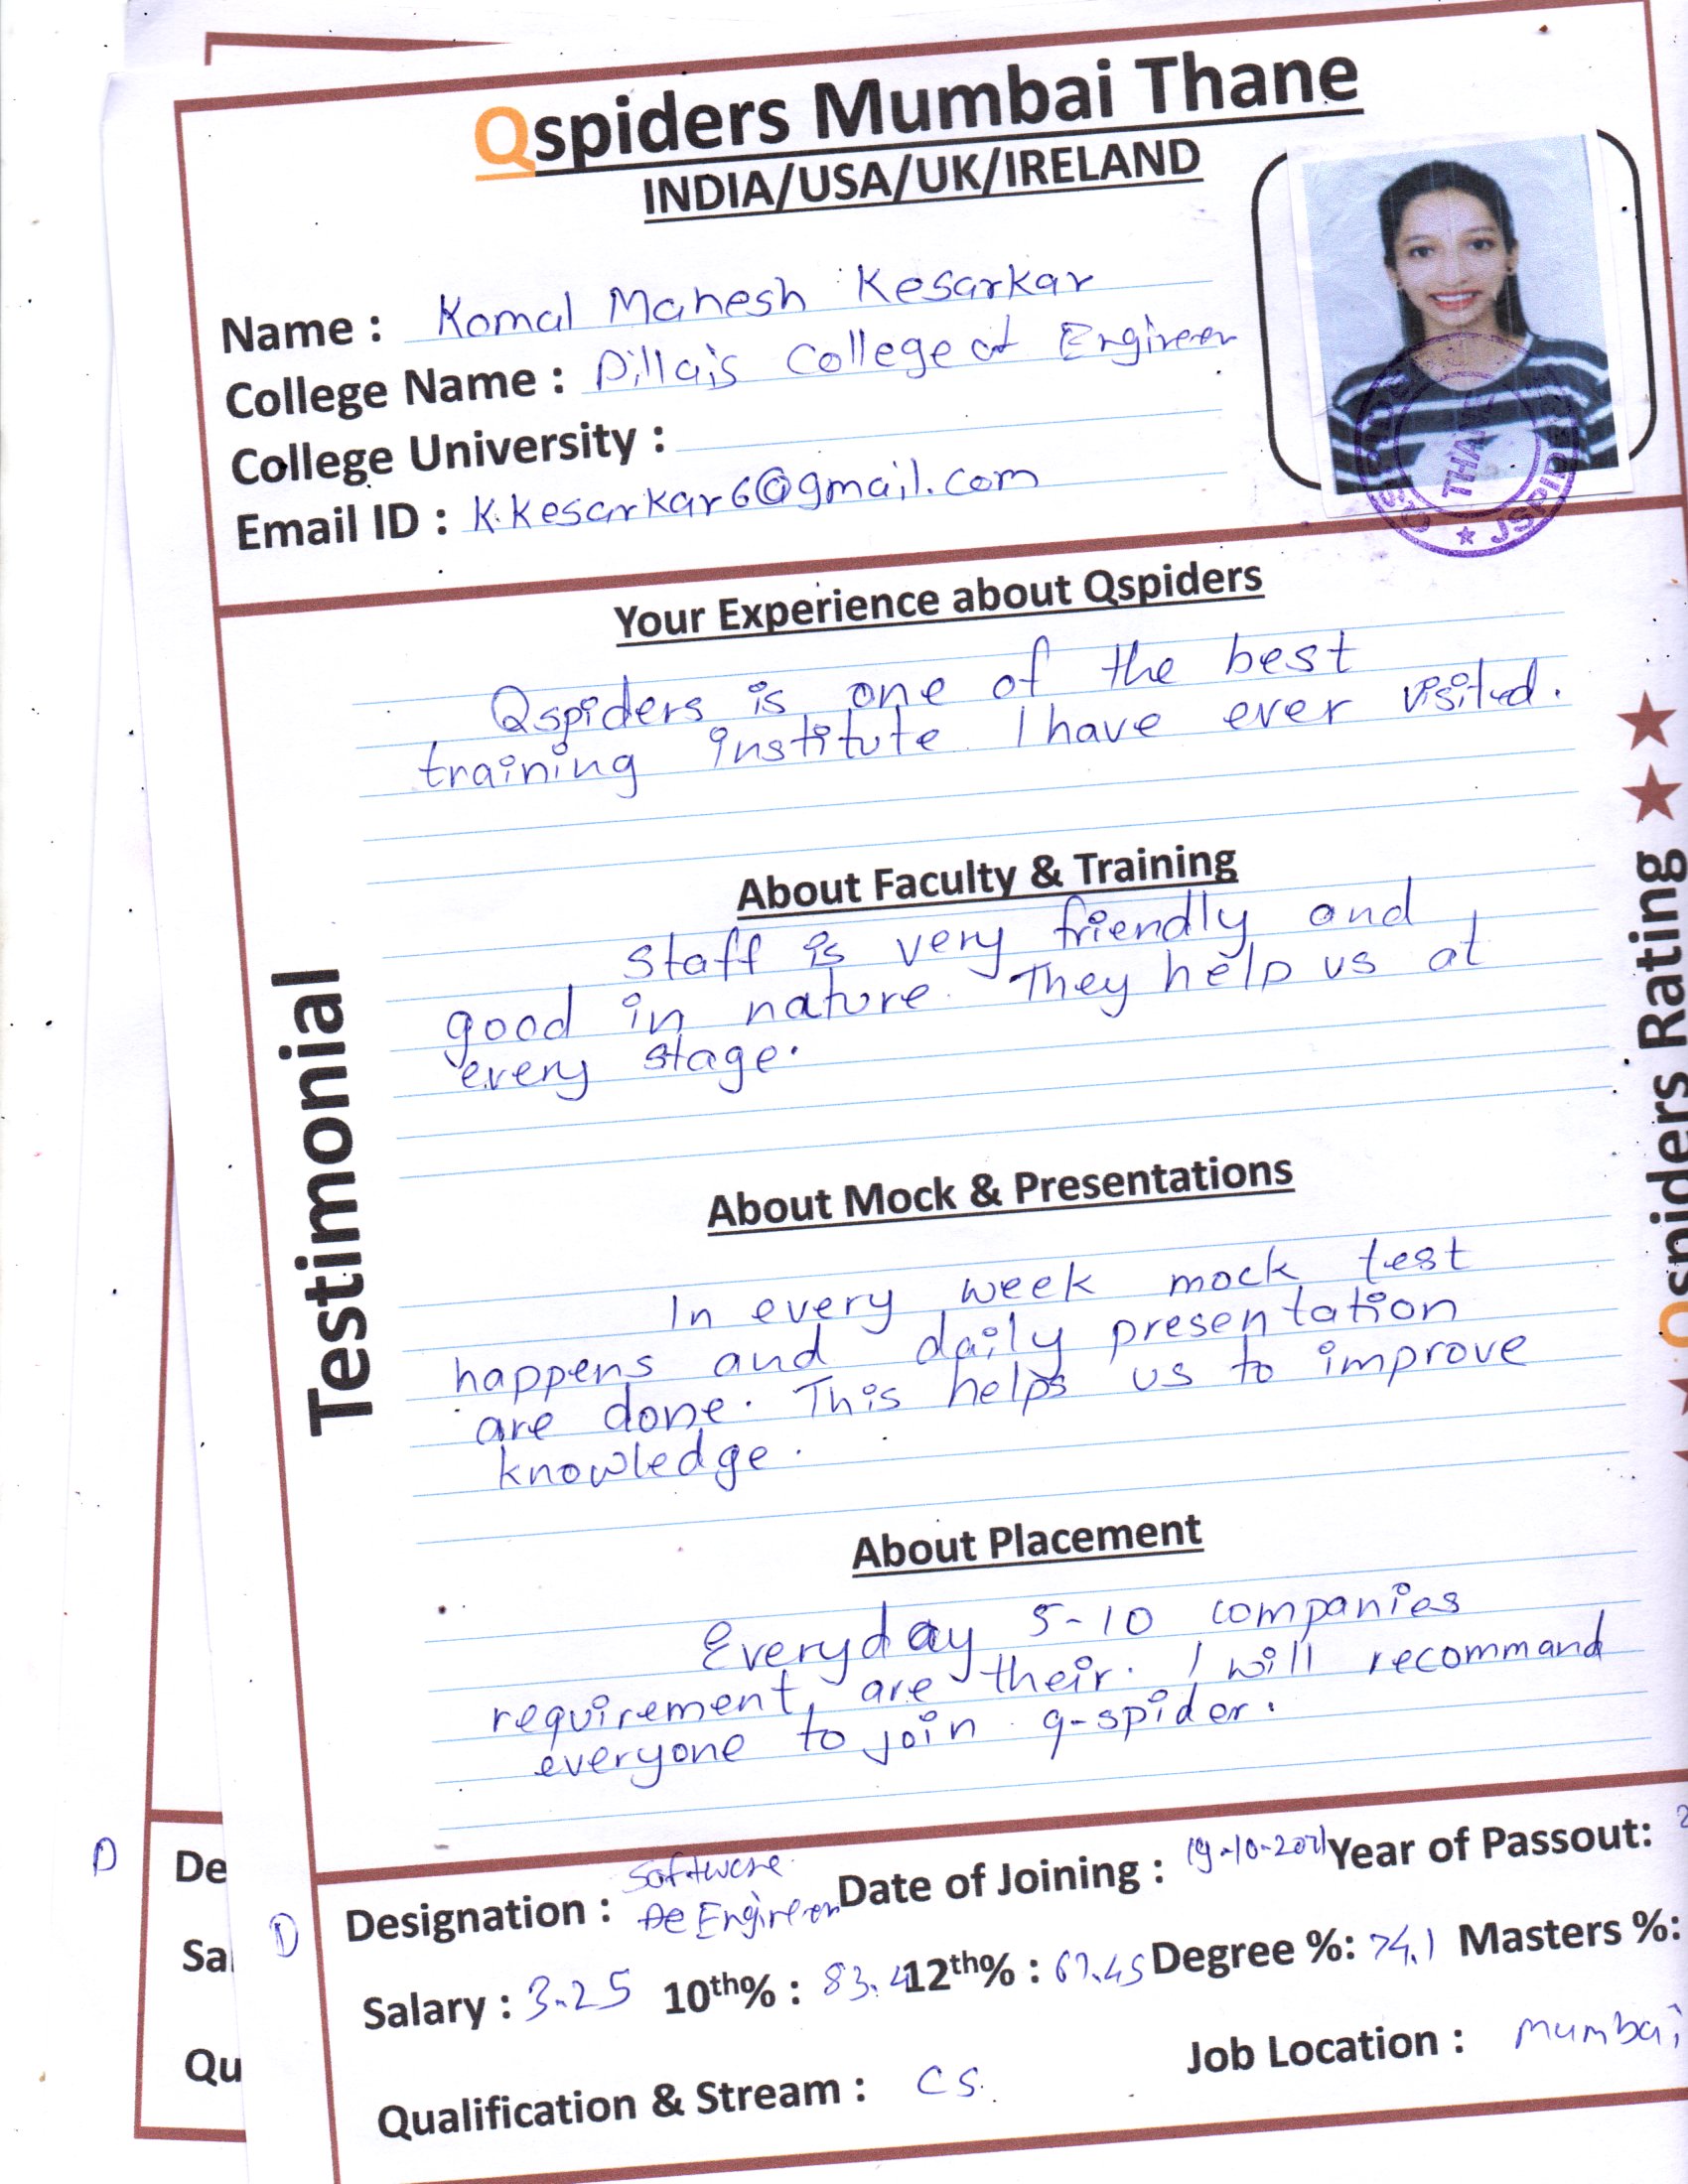 Qspiders Mumbai Thane
INDIA/USA/UK/IRELAND
Name : Komal Mahesh Kesarkar
College Name : Pillais College of Engineer
College University :
Email ID : K.Kesarkar6@gmail.com
THANE
JSPIDERS
Your Experience about Qspiders
Qspiders is one of the best
training institute I have ever visited.
About Faculty & Training
Staff is very friendly and
good in nature. They help us at
every stage.
Testimonial
About Mock & Presentations
In every week mock test
happens and daily presentation
are done. This helps us to improve
knowledge.
About Placement
Everyday 5-10 companies
requirement are their. I will recommand
everyone to join q-spider.
Qspiders Rating
Designation : Software Engineer Date of Joining : 19-10-2021 Year of Passout:
Salary : 3.25 10th% : 83.4 12th% : 67.45 Degree %: 74.1 Masters %:
Qualification & Stream : CS. Job Location : Mumbai
D
De
Sa
D
Qu